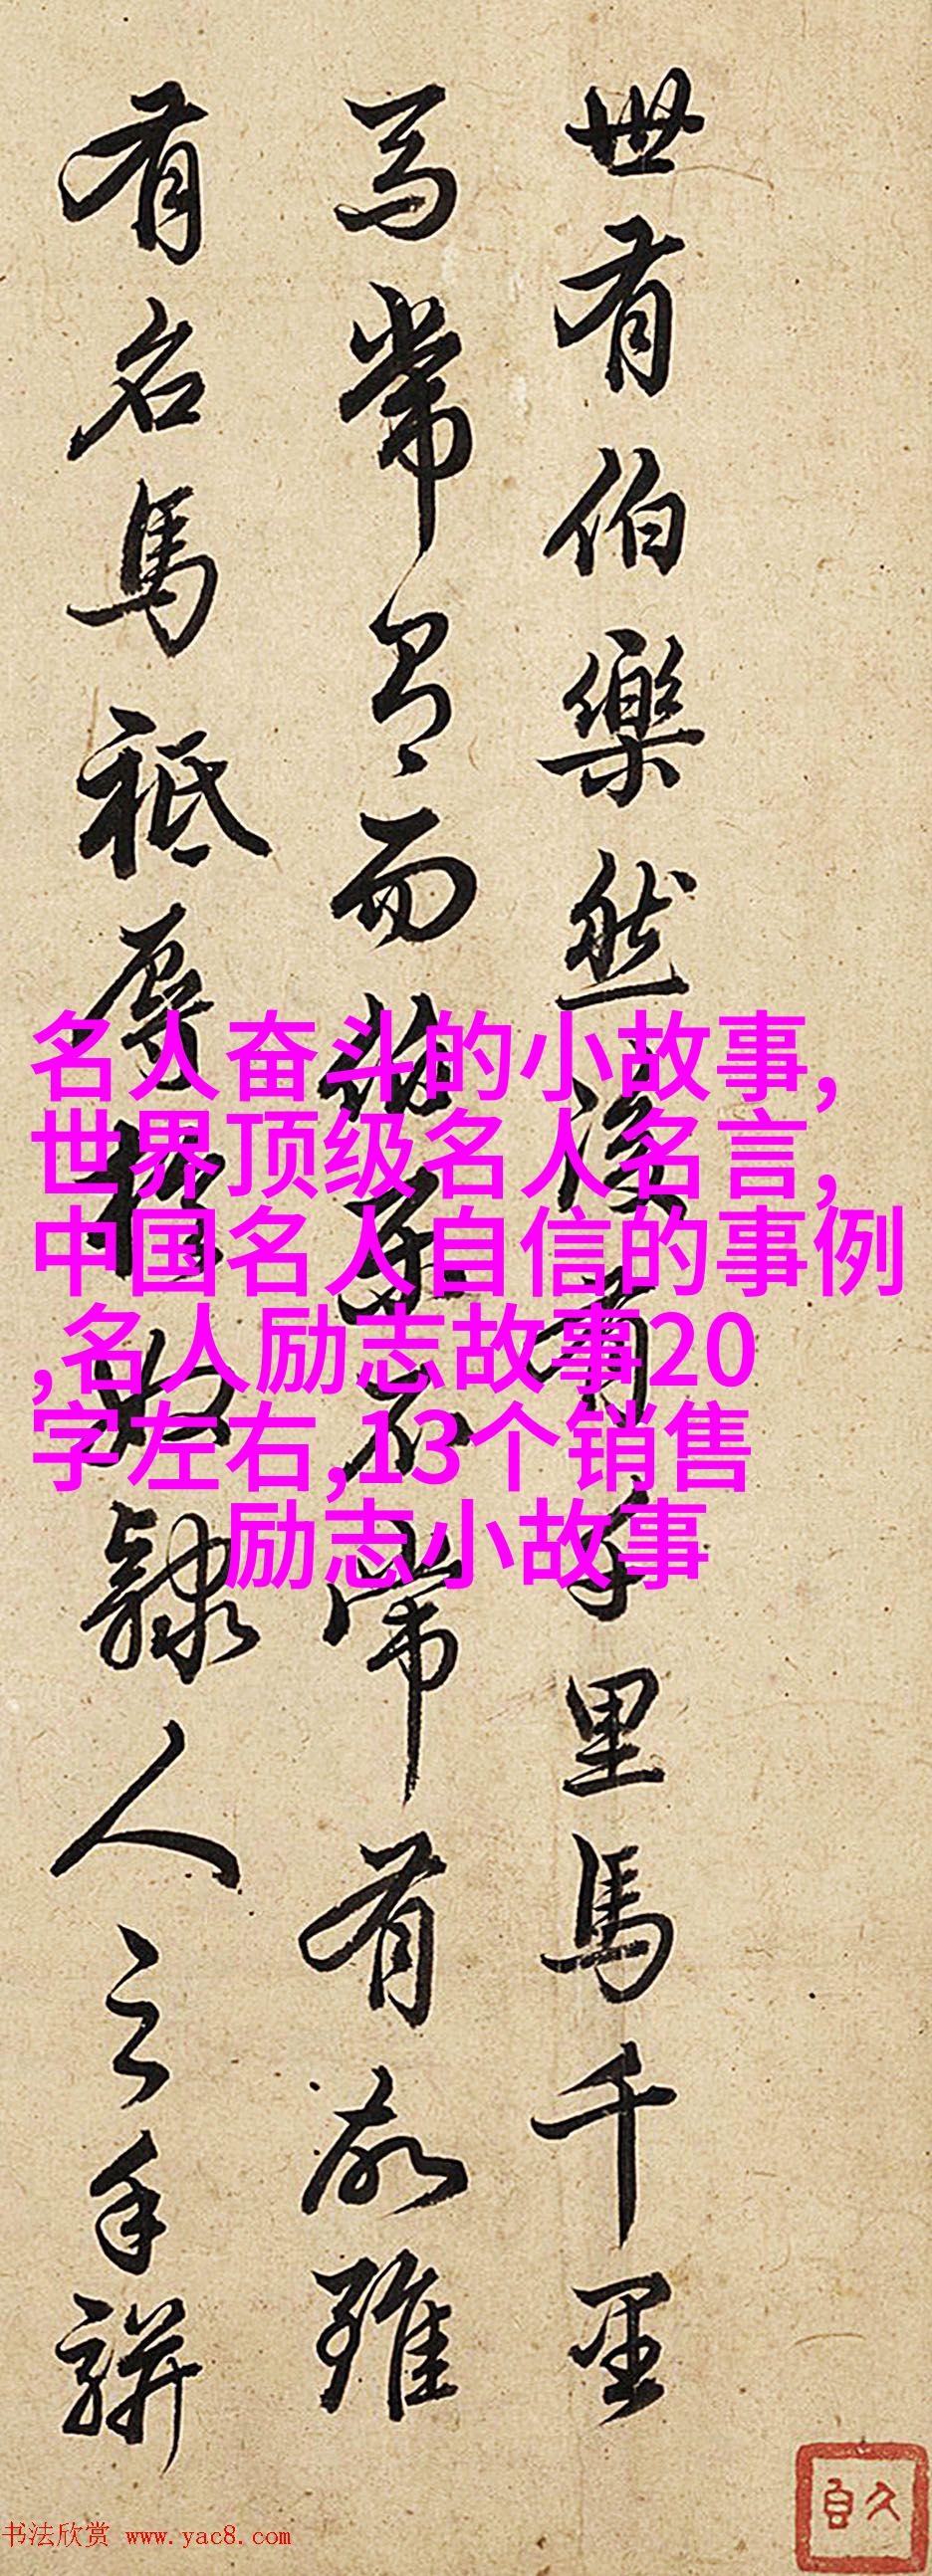 世有伯樂然後有千里馬千里
馬常有而伯樂不常有故雖
有名馬祗辱於奴隸人之手駢
名人奋斗的小故事,
世界顶级名人名言,
中国名人自信的事例
,名人励志故事20
字左右,13个销售
励志小故事
书法欣赏 www.yac8.com